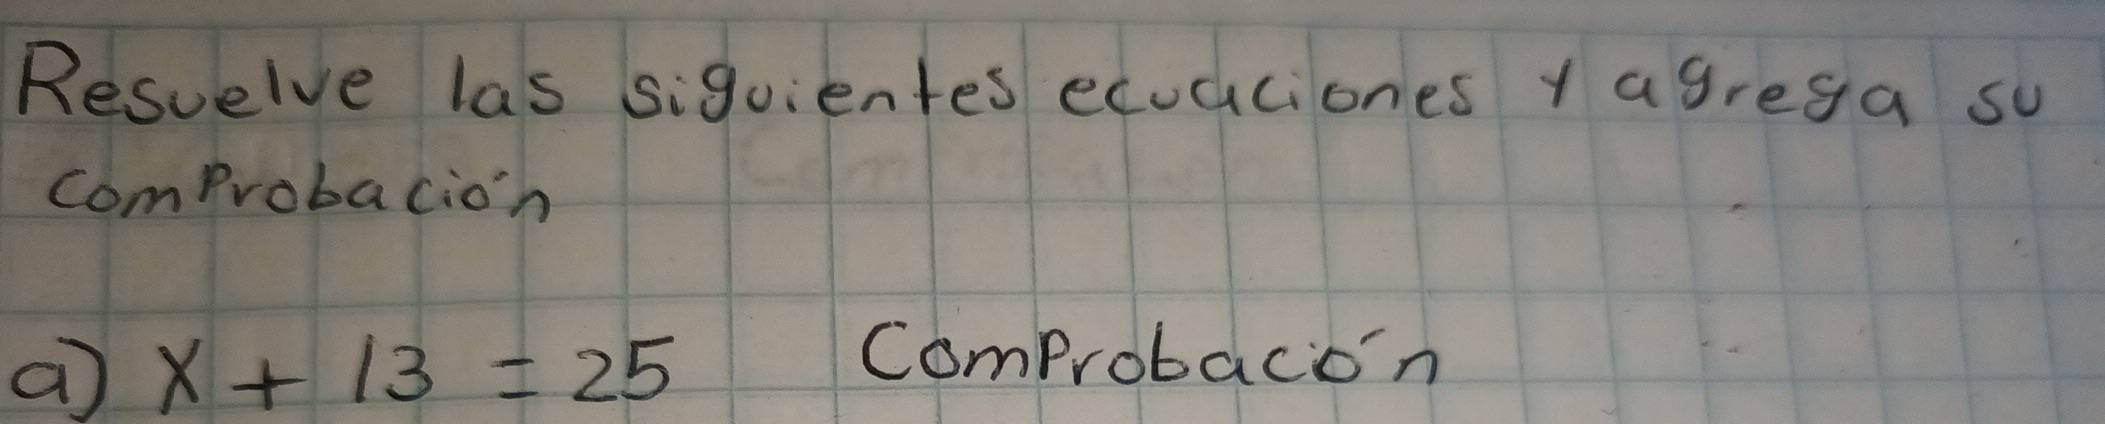 Resuelve las siguientes ecuaciones y agrega su
comprobación
a) x + 13 = 25 Comprobación